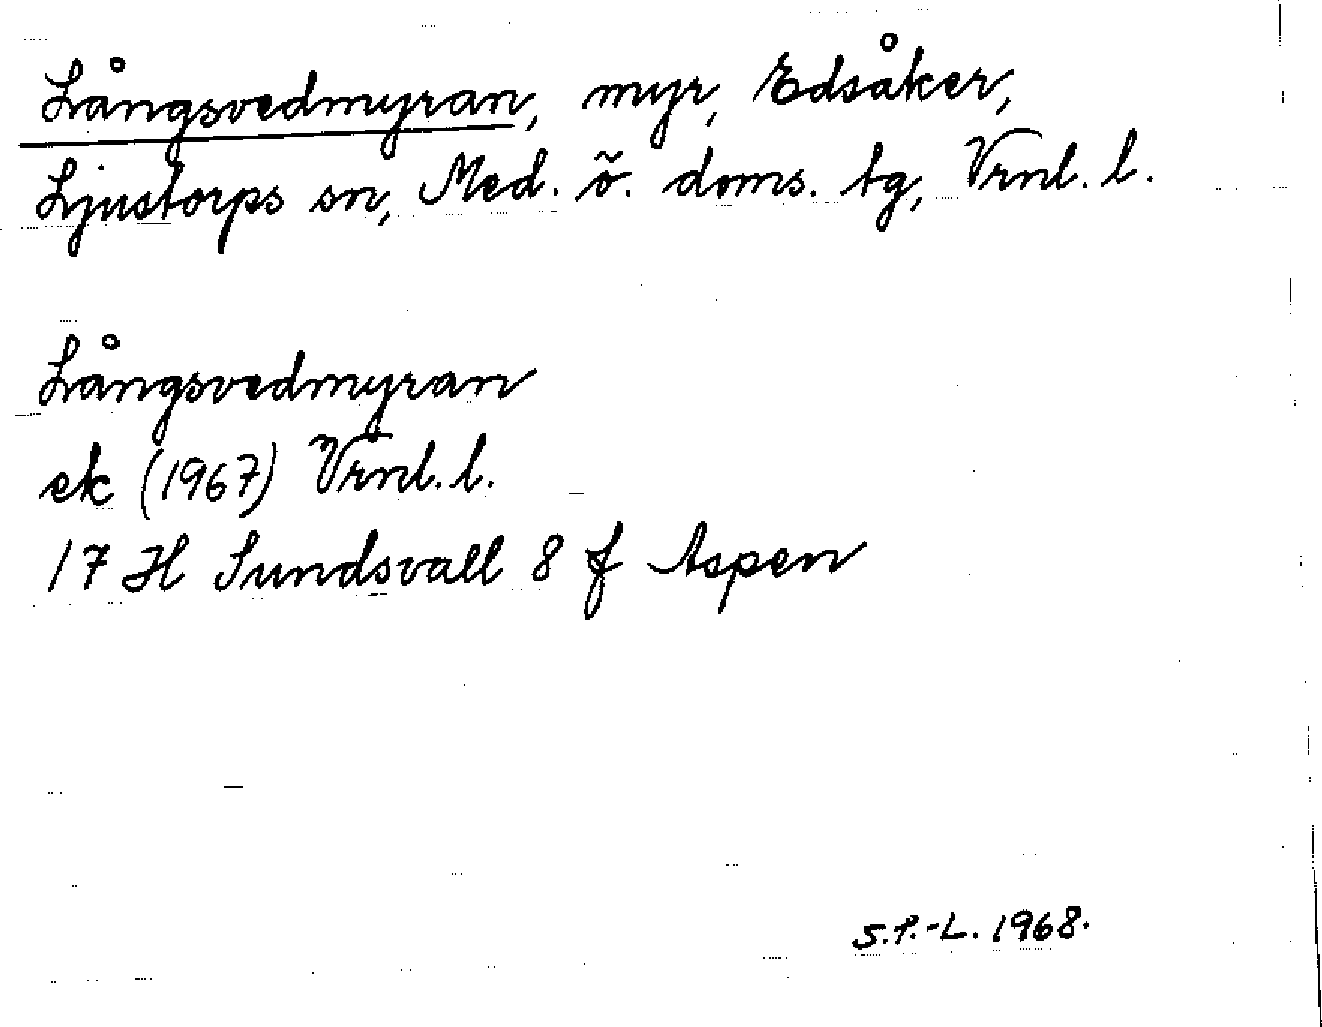 Långsvedmyran, myr, Edsåker,
Ljustorps sn, Med. ö. doms. tg, Vrnl. l.
Långsvedmyran
ek (1967) Vrnl. l.
17 H Sundsvall 8 f Aspen
S.P.-L. 1968.